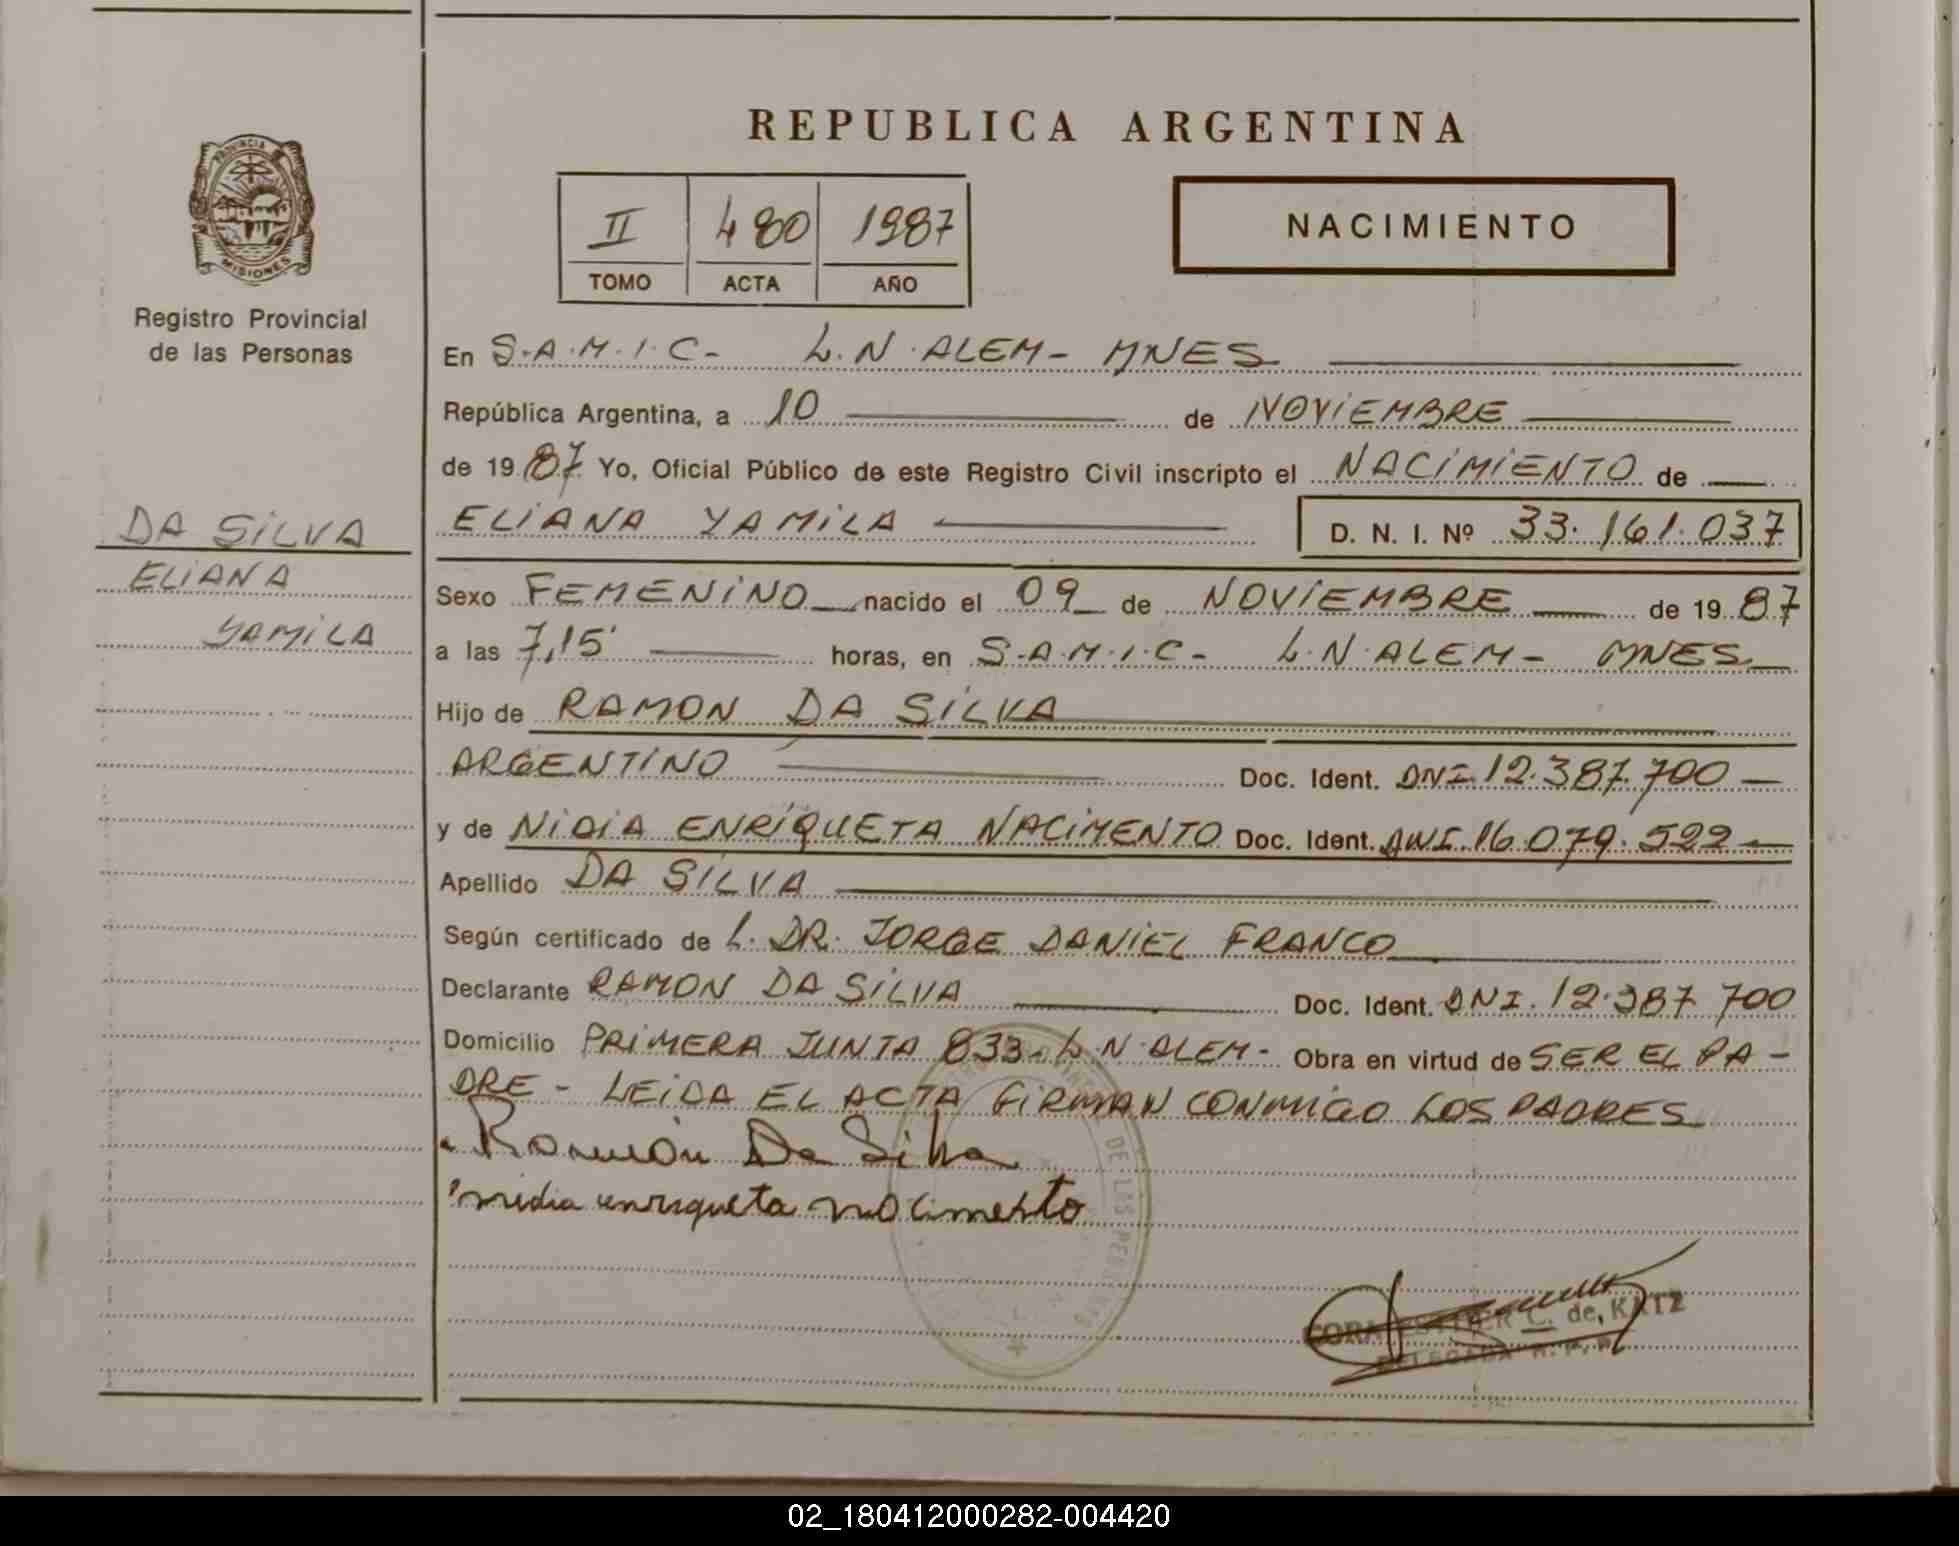 REPUBLICA ARGENTINA
PROVINCIA DE
MISIONES
Registro Provincial
de las Personas
II 480 1987
TOMO ACTA AÑO
NACIMIENTO
En S.A.M.I.C- L.N.ALEM- MNES
República Argentina, a 10 de NOVIEMBRE
de 1987 Yo, Oficial Público de este Registro Civil inscripto el NACIMIENTO de
DA SILVA
ELIANA
YAMILA
ELIANA YAMILA D. N. I. Nº 33.161.037
Sexo FEMENINO nacido el 09 de NOVIEMBRE de 1987
a las 7,15' horas, en S.A.M.I.C- L.N.ALEM- MNES
Hijo de RAMON DA SILVA
ARGENTINO Doc. Ident. DNI.12.387.700-
y de NIDIA ENRIQUETA NACIMENTO Doc. Ident. DNI.16.079.522-
Apellido DA SILVA
Según certificado de L. DR. JORGE DANIEL FRANCO
Declarante RAMON DA SILVA Doc. Ident. DNI.12.387 700
Domicilio PRIMERA JUNTA 833-L.N.ALEM- Obra en virtud de SER EL PA-
DRE- LEIDA EL ACTA FIRMAN CONMIGO LOS PADRES
Ramón Da Silva
nidia enriqueta nacimento
DE LAS PERSONAS
CORA ESTHER C. de, KATZ
DELEGADA R. P. P.
02_180412000282-004420